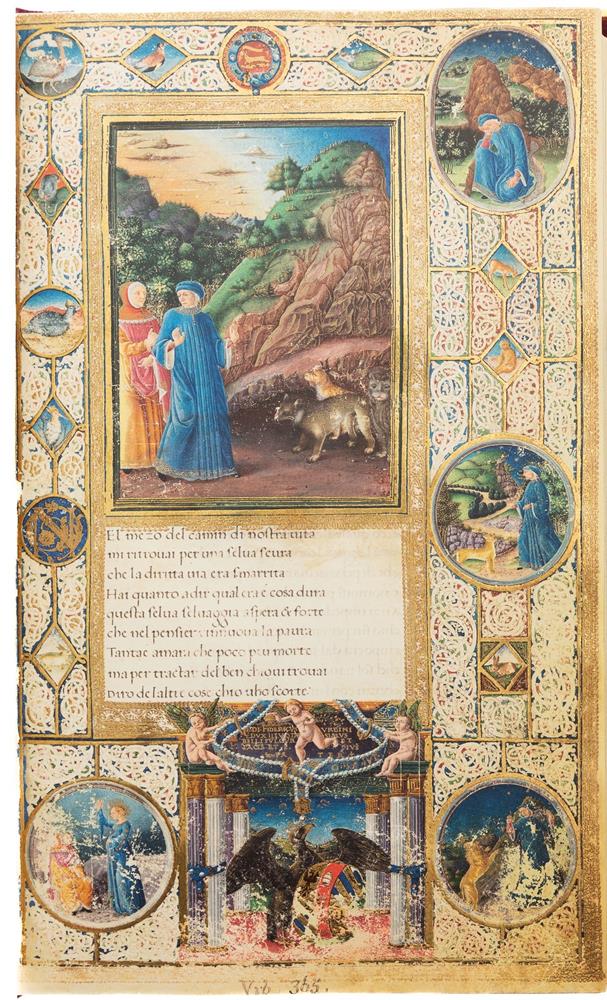 El mezo del camin di nostra uita
mi ritrouai per una selua scura
che la diritta uia era smarrita
Hai quanto a dir qual era è cosa dura
questa selua seluaggia aspera & forte
che nel pensier rinuoua la paura
Tantae amara che poco piu morte
ma per tractar del ben chioui trouai
Diro de laltre cose chio uho scorte
Vrb 365.